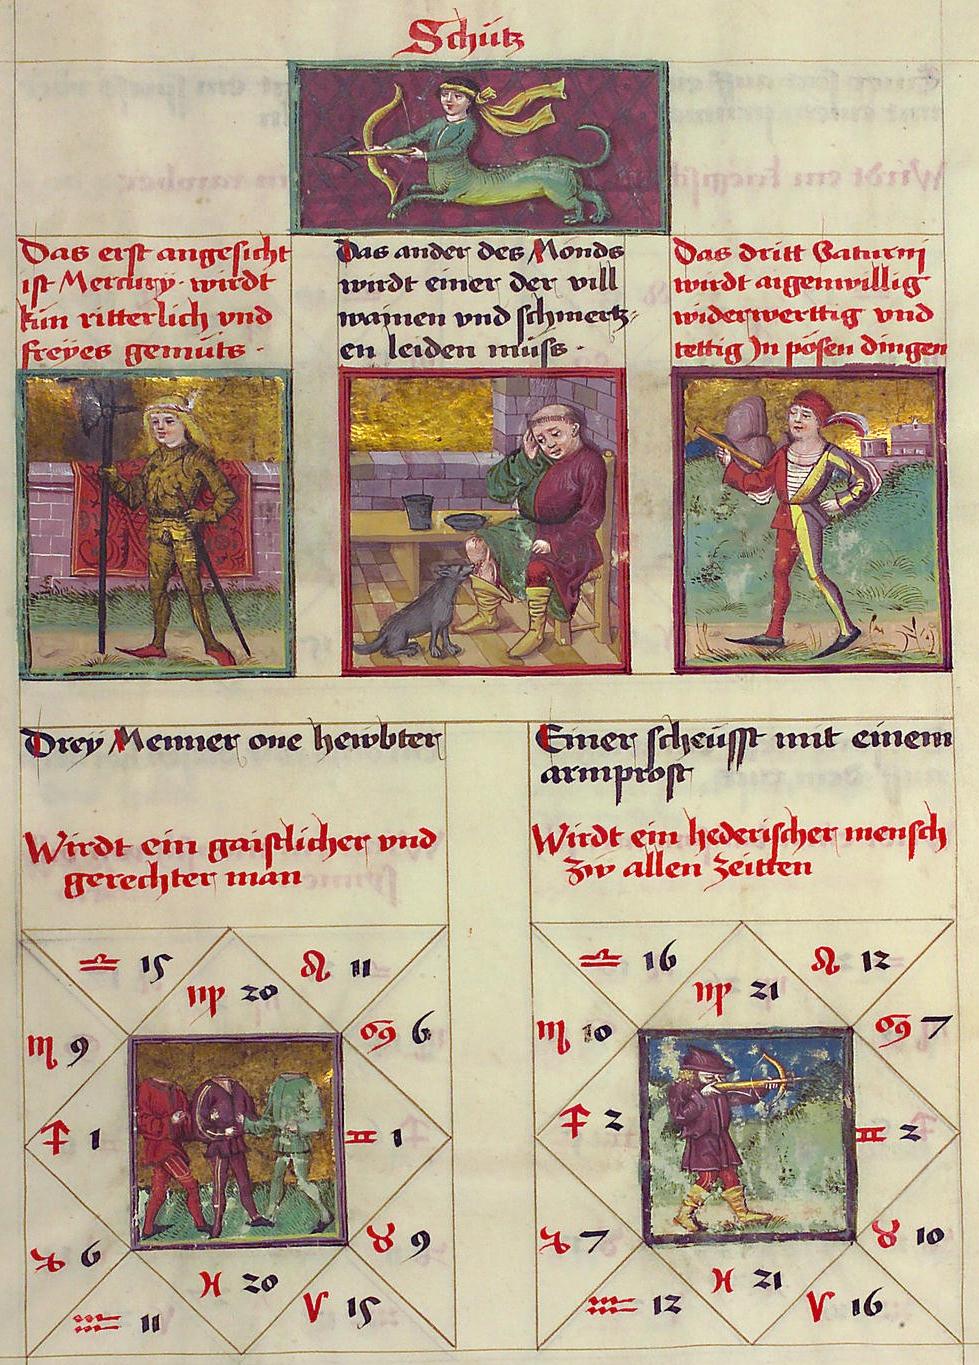 Schütz
Das erst angesicht
ist Mercury · wirdt
kün ritterlich vnd
freÿes gemüts ·
Das ander des Monds
wirdt einer der vill
wainen vnd schmertz=
en leiden müss ·
Das dritt Saturnj
wirdt aigenwillig
widerwerttig vnd
tettig Jn pösen dingen
Drey Menner one hewbter
Wirdt ein gaistlicher vnd
gerechter man
♎ 15
♌ 11
♍ 20
♏ 9
♋ 6
♐ 1
♊ 1
♑ 6
♉ 9
♓ 20
♒ 11
♈ 15
Einer scheüsst mit einem
armprost
Wirdt ein hederischer mensch
zw allen zeitten
♎ 16
♌ 12
♍ 21
♏ 10
♋ 7
♐ 2
♊ 2
♑ 7
♉ 10
♓ 21
♒ 12
♈ 16